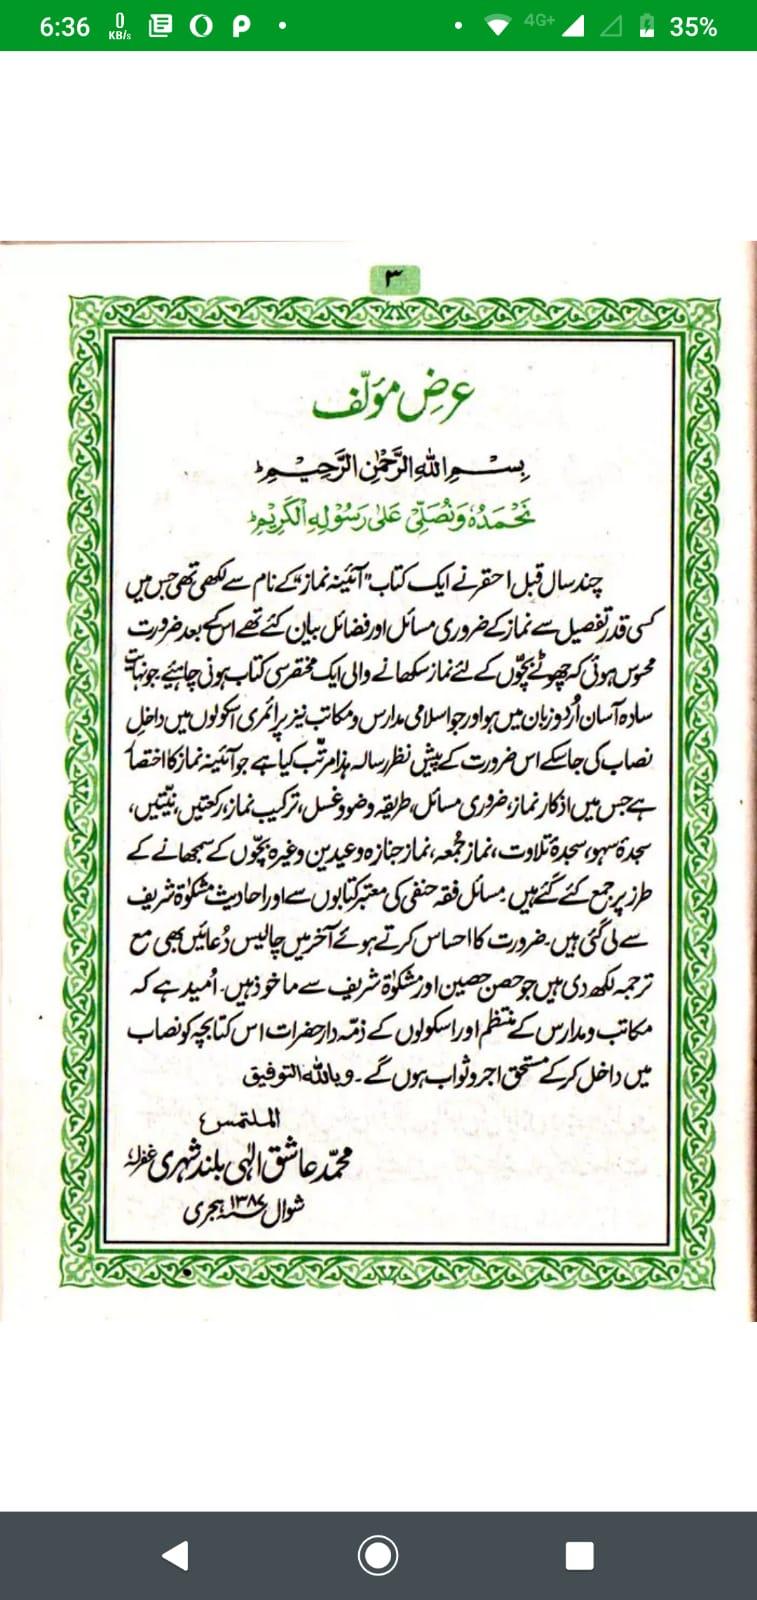 6:36
0
KB/s
4G+
35%
۳
عرضِ مؤلّف
بِسْمِ اللهِ الرَّحْمٰنِ الرَّحِيْمِ ؕ
نَحْمَدُهٗ وَنُصَلِّیْ عَلٰی رَسُوْلِهِ الْكَرِيْمِ ؕ
چند سال قبل احقر نے ایک کتاب "آئینہ نماز" کے نام سے لکھی تھی جس میں
کسی قدر تفصیل سے نماز کے ضروری مسائل اور فضائل بیان کئے تھے اس کے بعد ضرورت
محسوس ہوئی کہ چھوٹے بچّوں کے لئے نماز سکھانے والی ایک مختصر سی کتاب ہونی چاہئیے جو نہایت
سادہ آسان اُردو زبان میں ہو اور جو اسلامی مدارس و مکاتب نیز پرائمری اسکولوں میں داخلِ
نصاب کی جاسکے اس ضرورت کے پیشِ نظر رسالہ ہذا مرتّب کیا ہے جو آئینہ نماز کا اختصار
ہے جس میں اذکار نماز، ضروری مسائل، طریقہ وضو و غسل، ترکیب نماز، رکعتیں، نیّتیں،
سجدۂ سہو، سجدۂ تلاوت، نماز جمُعہ، نماز جنازہ و عیدین وغیرہ بچّوں کے سمجھانے کے
طرز پر جمع کئے گئے ہیں۔ مسائل فقہ حنفی کی معتبر کتابوں سے اور احادیث مشکوٰۃ شریف
سے لی گئی ہیں۔ ضرورت کا احساس کرتے ہوئے آخر میں چالیس دُعائیں بھی مع
ترجمہ لکھ دی ہیں جو حصن حصین اور مشکوٰۃ شریف سے ماخوذ ہیں۔ اُمید ہے کہ
مکاتب و مدارس کے منتظم اور اسکولوں کے ذمّہ دار حضرات اس کتابچہ کو نصاب
میں داخل کر کے مستحق اجر و ثواب ہوں گے۔ وباللہ التوفیق
الملتمس
محمّد عاشق الٰہی بلند شہری غفرلہٗ
شوال ۱۳۸۷ ہجری